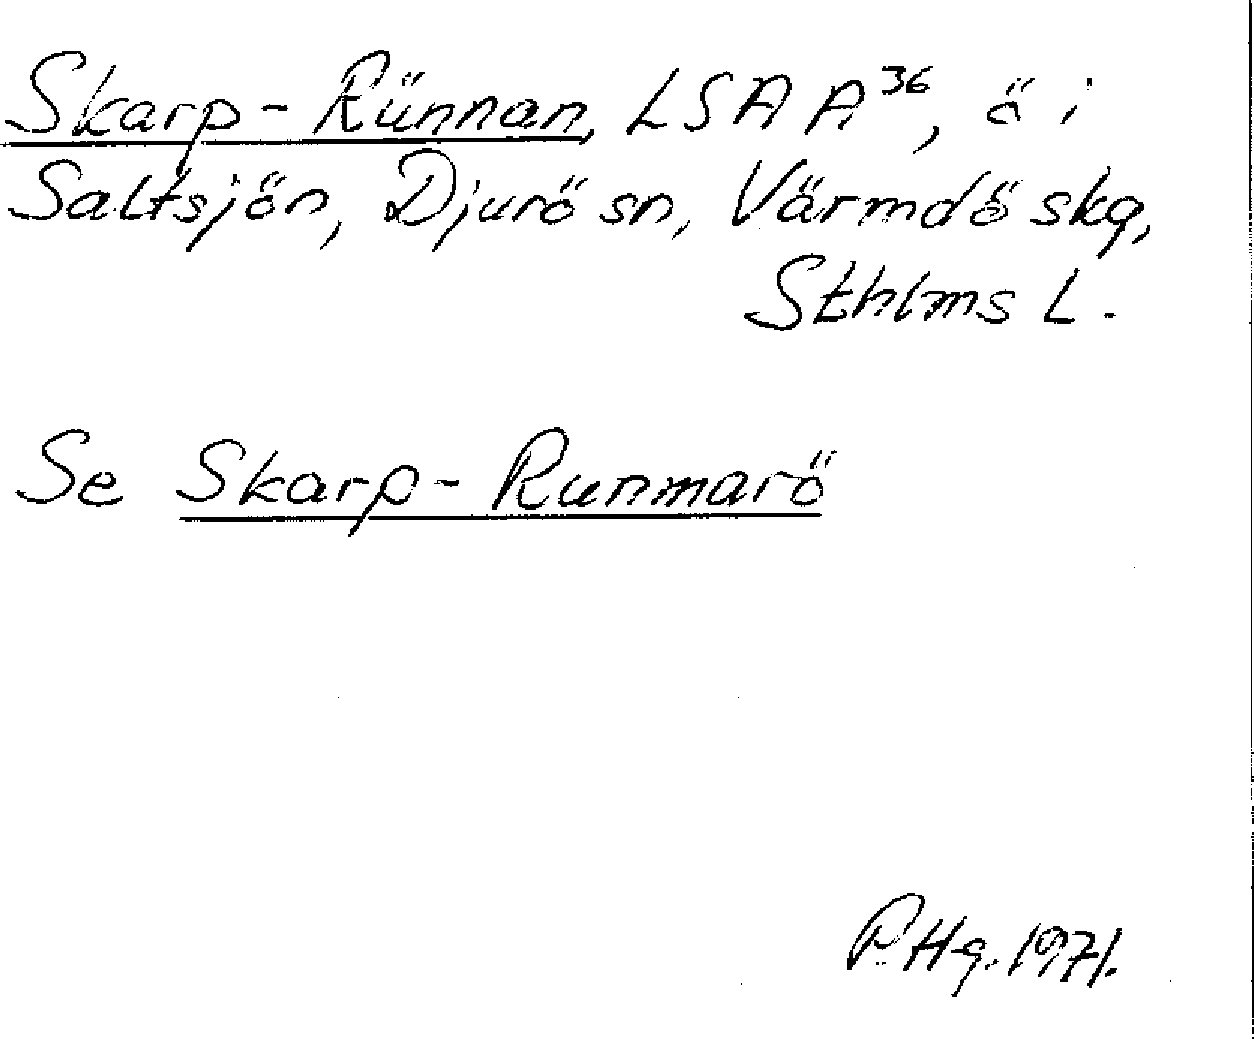 Skarp-Rünnan, LSA A36, ö i
Saltsjön, Djurö sn, Värmdö skg,
Sthlms L.
Se Skarp-Runmarö
P.Hg. 1971.